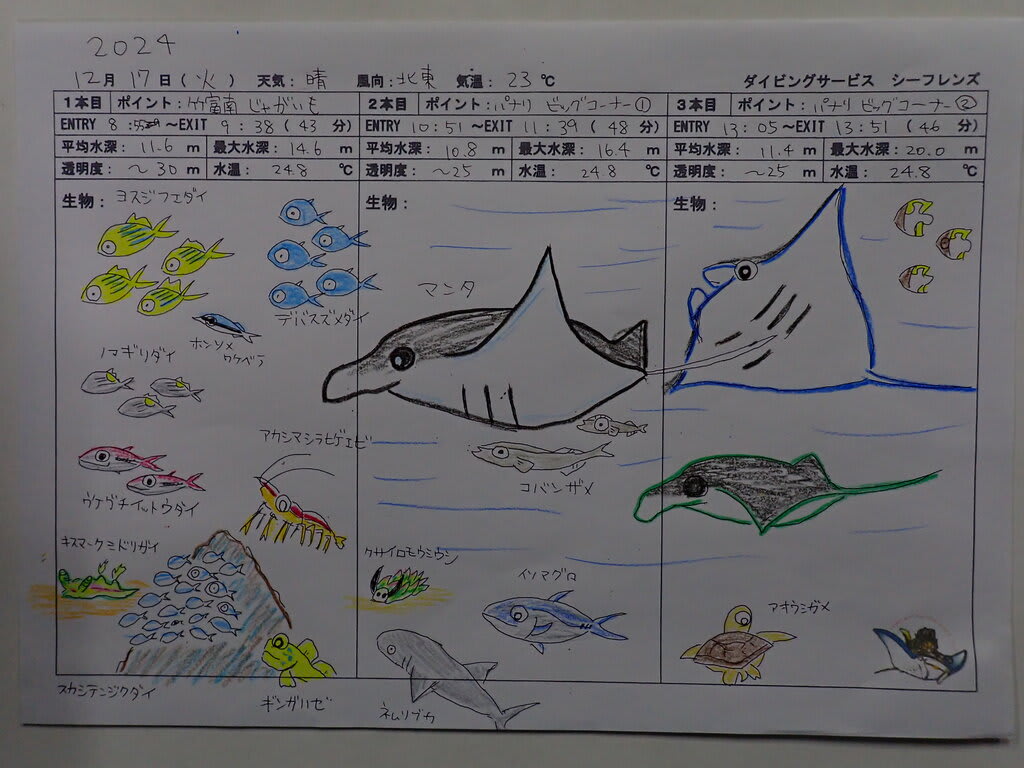 2024
12月 17日(火) 天気:晴 風向:北東 気温:23℃ ダイビングサービス シーフレンズ
1本目 ポイント:竹富南 じゃがいも
ENTRY 8: ~EXIT 9:38(43分)
平均水深:11.6 m 最大水深:14.6 m
透明度:~30 m 水温:24.8 ℃
生物:ヨスジフエダイ
デバスズメダイ
ホンソメ
ワケベラ
ノマギリダイ
アカシマシラヒゲエビ
ウケグチイットウダイ
キスマークミドリガイ
スカシテンジクダイ
ギンガハゼ
2本目 ポイント:パナリ ビッグコーナー①
ENTRY 10:51~EXIT 11:39(48分)
平均水深:10.8 m 最大水深:16.4 m
透明度:~25 m 水温:24.8 ℃
生物:
マンタ
コバンザメ
クサイロモウミウシ
イソマグロ
ネムリブカ
3本目 ポイント:パナリ ビッグコーナー②
ENTRY 13:05~EXIT 13:51(46分)
平均水深:11.4 m 最大水深:20.0 m
透明度:~25 m 水温:24.8 ℃
生物:
アオウミガメ